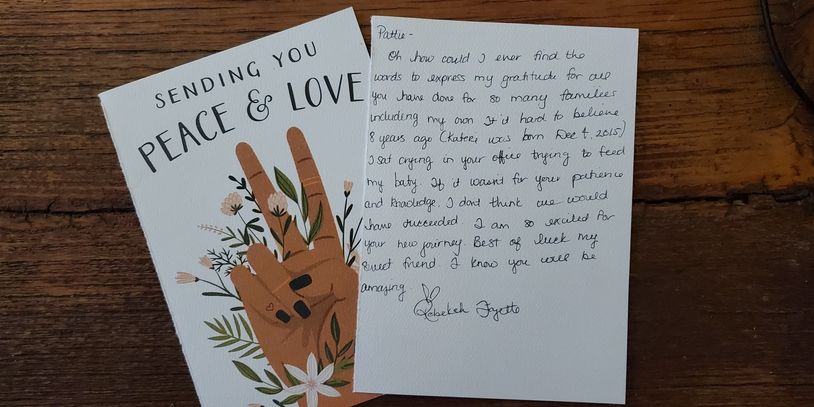 SENDING YOU
PEACE & LOVE
Pattie -
Oh how could I ever find the
words to express my gratitude for all
you have done for so many families
including my own. It'd hard to believe
8 years ago (Kateri was born Dec 4, 2015)
I sat crying in your office trying to feed
my baby. If it wasn't for your patience
and knowledge, I dont think we would
have succeeded. I am so excited for
your new journey. Best of luck my
sweet friend. I know you will be
amazing.
Rebekah